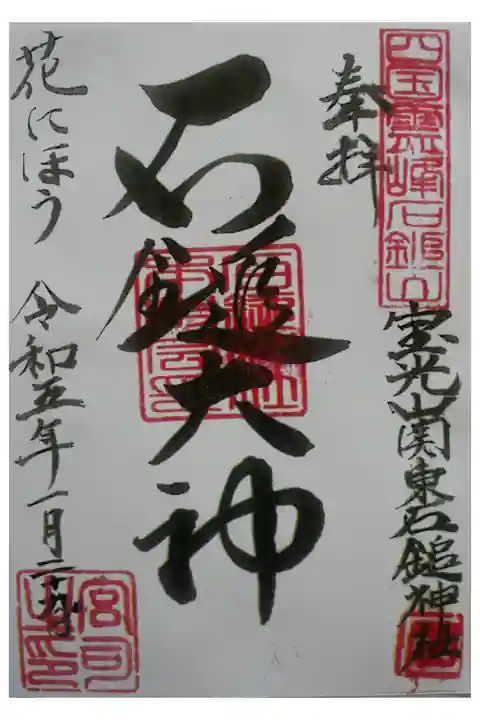 四国霊峰石鎚山
宝光山関東石鎚神社
奉拝
石鎚大神
花にほう
令和五年一月二十五日
宮司之印